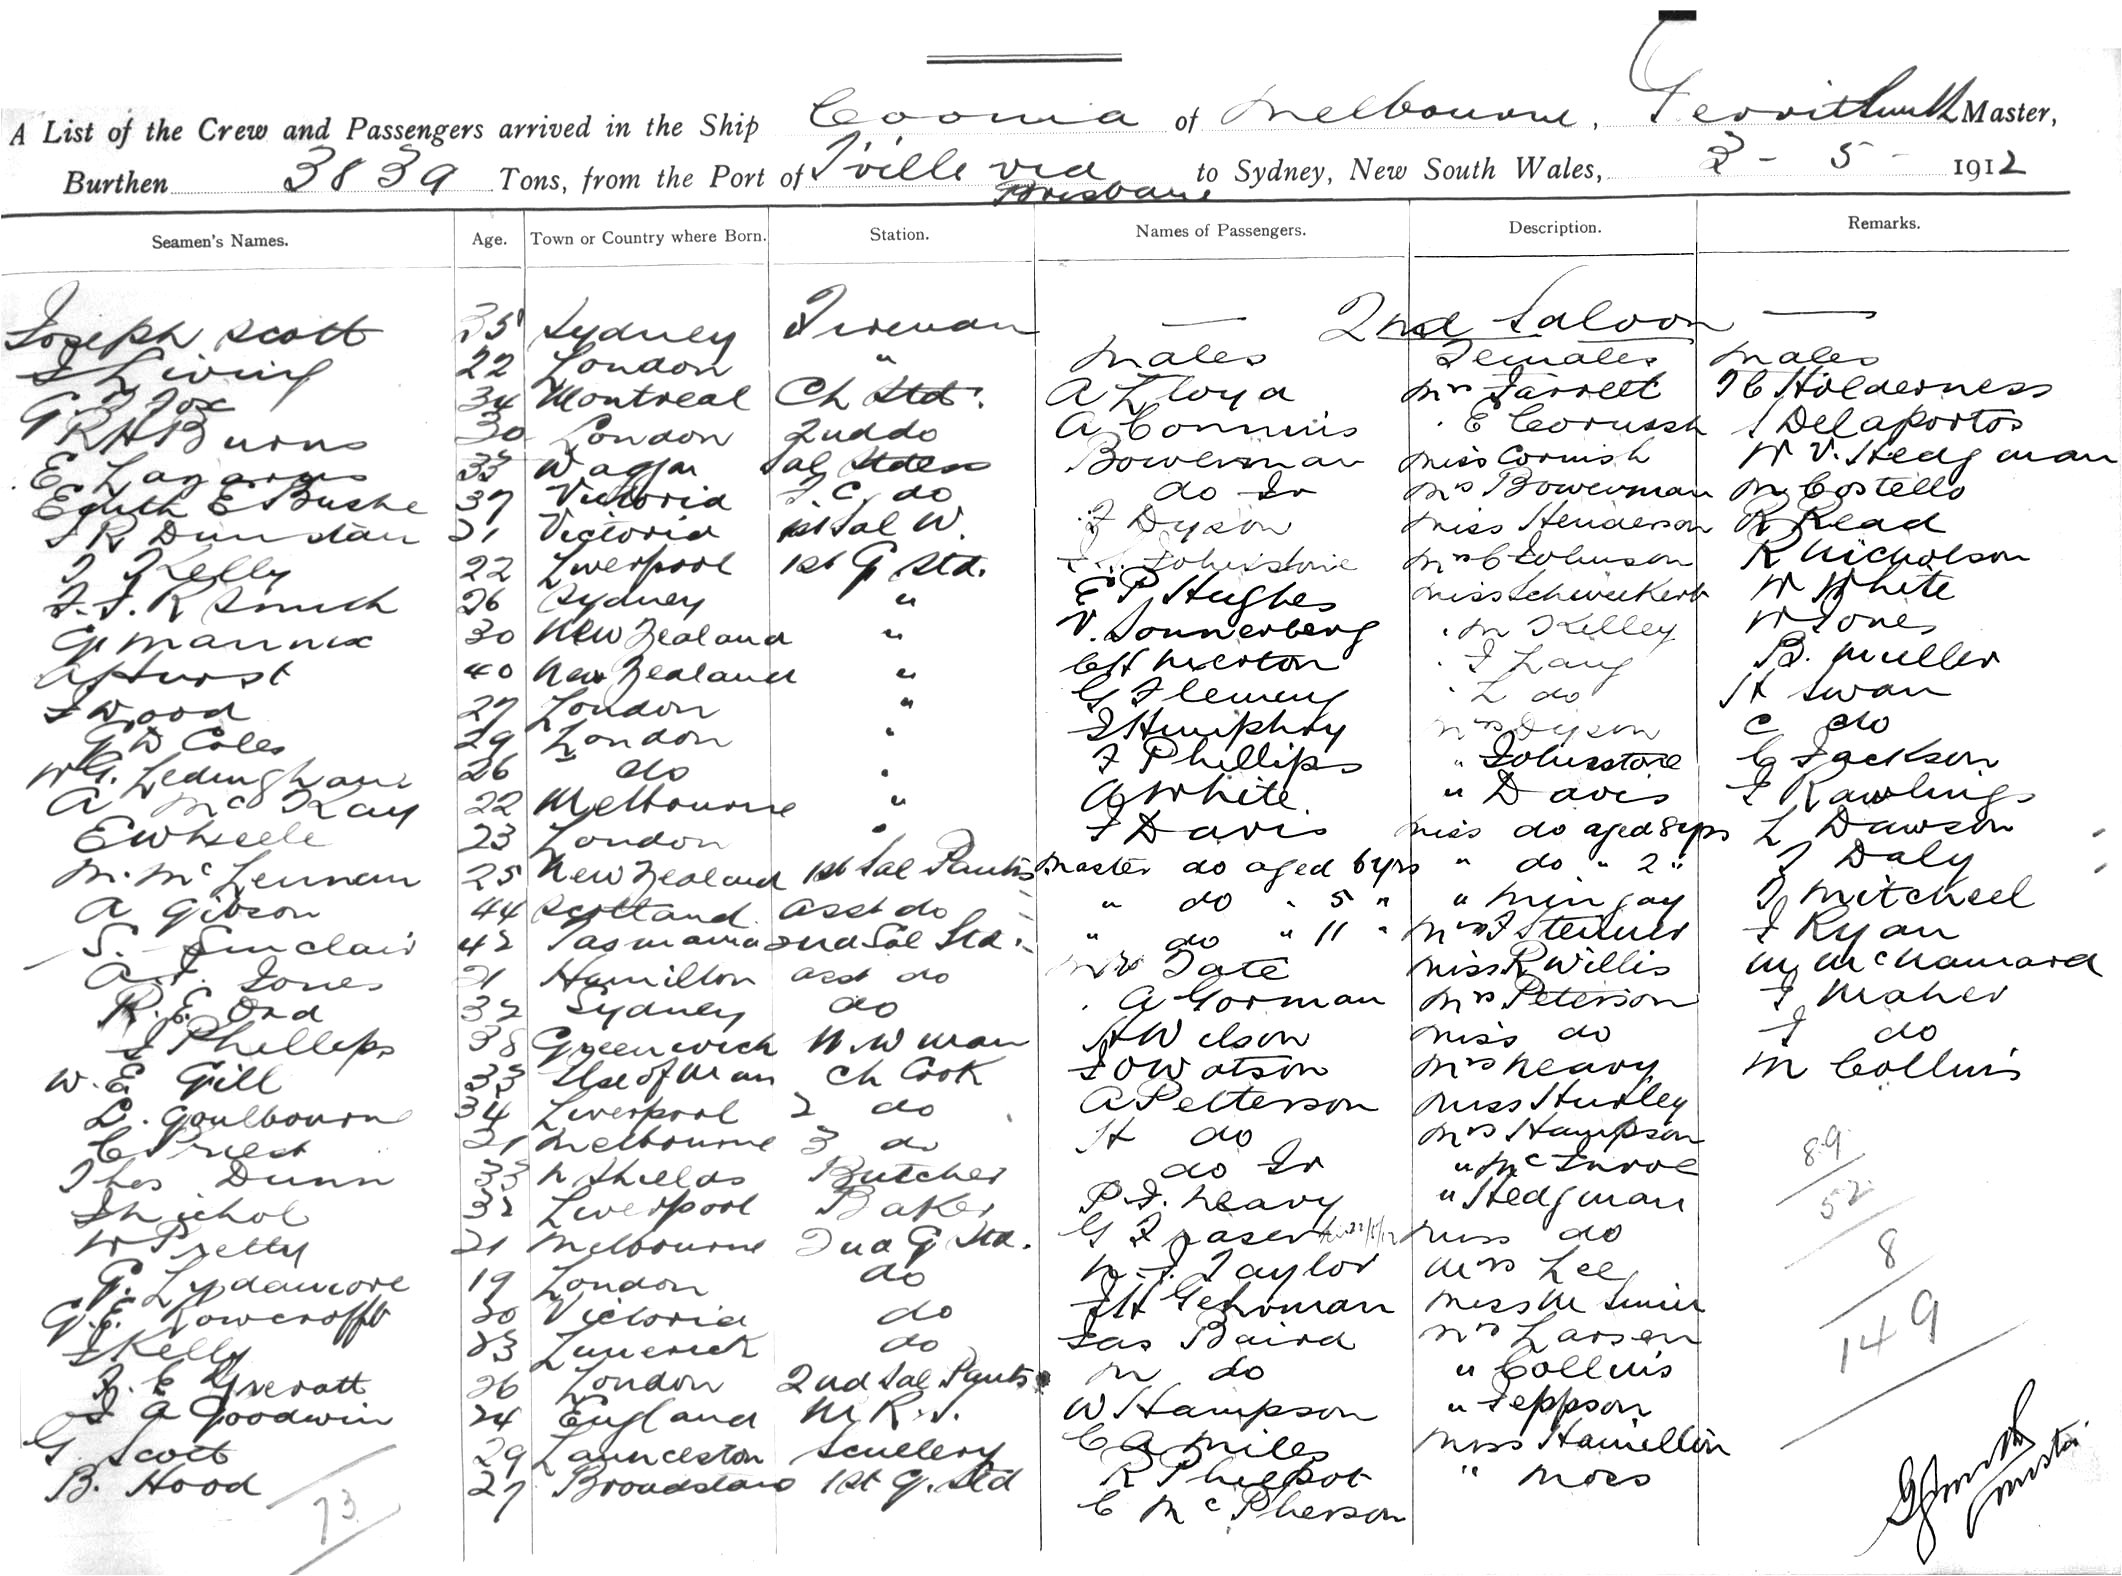 A List of the Crew and Passengers arrived in the Ship Cooma of Melbourne, Master,
Burthen 3839 Tons, from the Port of T'ville via Brisbane to Sydney, New South Wales, 3 - 5 - 1912
Seamen's Names. Age. Town or Country where Born. Station. Names of Passengers. Description. Remarks.
Joseph Scott 35 Sydney Fireman — 2nd Saloon —
22 London " Males Females Males
G Fox 34 Montreal Ch Std. A Lloyd Mrs Jarrett Holderness
R H Burns 30 London 2nd do A Commins " E Cornish J Delaportos
E Lazarus 33 Wagga Sal Stdess Bowerman Miss Cornish W V. Hedgman
Edith E Bushe 37 Victoria F. C. do do Jr Mrs Bowerman M Costello
J R Dunstan 21 Victoria 1st Sal W. F Dyson Miss Henderson R Read
J Kelly 22 Liverpool 1st G Std. Johnstone Mrs C Johnson R Nicholson
J. J. R Smith 26 Sydney " E P Hughes Miss W White
G Mannix 30 New Zealand " V. Sonnerberg " M Kelley W Jones
A Hurst 40 New Zealand " C H Merton " J Lang B. Muller
J Wood 27 London " G Fleming " L do H Swan
G W Coles 29 London " J Humphry Mrs Dyson C do
W G. Ledingham 26 do " F Phillips " Johnstone C Jackson
A McKay 22 Melbourne " A White " Davis J Rawlings
E Wheele 23 London " J Davis Miss do aged 8 yrs L Dawson
M. McLennan 25 New Zealand 1st Sal Pants Master do aged 6 yrs " do " 2 " J Daly
A Gibson 44 Scotland asst do " do " 5 " " Mingay J Mitchell
S. Sinclair 42 Tasmania 2nd Sal Std. " do " 11 " Mrs J Steiner J Ryan
A. J. Jones 21 Hamilton asst do Mr Tate Miss R Willis M McNamara
R. E. Ord 32 Sydney do " A Gorman Mrs Peterson J Maher
J Phillips 38 Greenwich N. W man A Wilson Miss do J do
W. E Gill 33 Isle of Man Ch Cook J O Watson Mrs Neavy M Collins
D. Goulbourne 34 Liverpool 2 do A Petterson Miss Hurley
C Priest 21 Melbourne 3 do H do Mrs Hampson
Thos Dunn 33 N Shields Butcher do Jr " McInroe
J Nichol 32 Liverpool Baker P. J. Neavy " Hedgman
W Pretty 21 Melbourne 2nd G Std. G Fraser Miss do
G. Lydamore 19 London do N. J. Taylor Mrs Lee
G. E. Rowcrofft 20 Victoria do J H Gehrman Miss M
J Kelly 23 Limerick do Jas Baird Mrs Larsen
J. E Everatt 26 London 2nd Sal Pants M do " Collins
J A Goodwin 24 England M R. S. W Hampson " Jeppson
G Scott 29 Launceston Scullery C A Miles Miss Hamilton
B. Hood 27 1st G. Std R Philpot " Moss
C McPherson
73
89
52
8
149
G Smith
Master